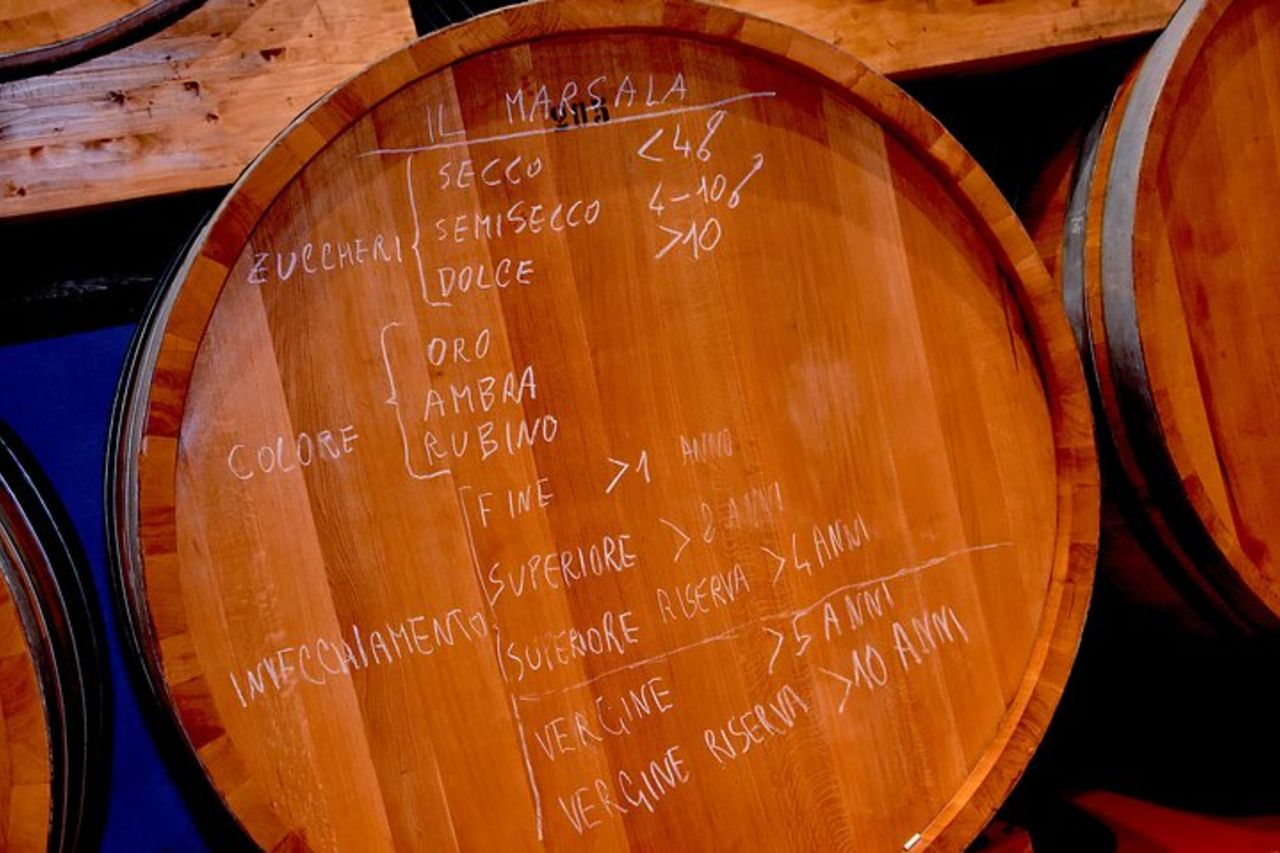 IL MARSALA
205
ZUCCHERI
SECCO <4%
SEMISECCO 4-10%
DOLCE >10
COLORE
ORO
AMBRA
RUBINO
INVECCAIAMENTO
FINE >1 ANNO
SUPERIORE >2 ANNI
SUPERIORE RISERVA >4 ANNI
VERGINE >5 ANNI
VERGINE RISERVA >10 ANNI